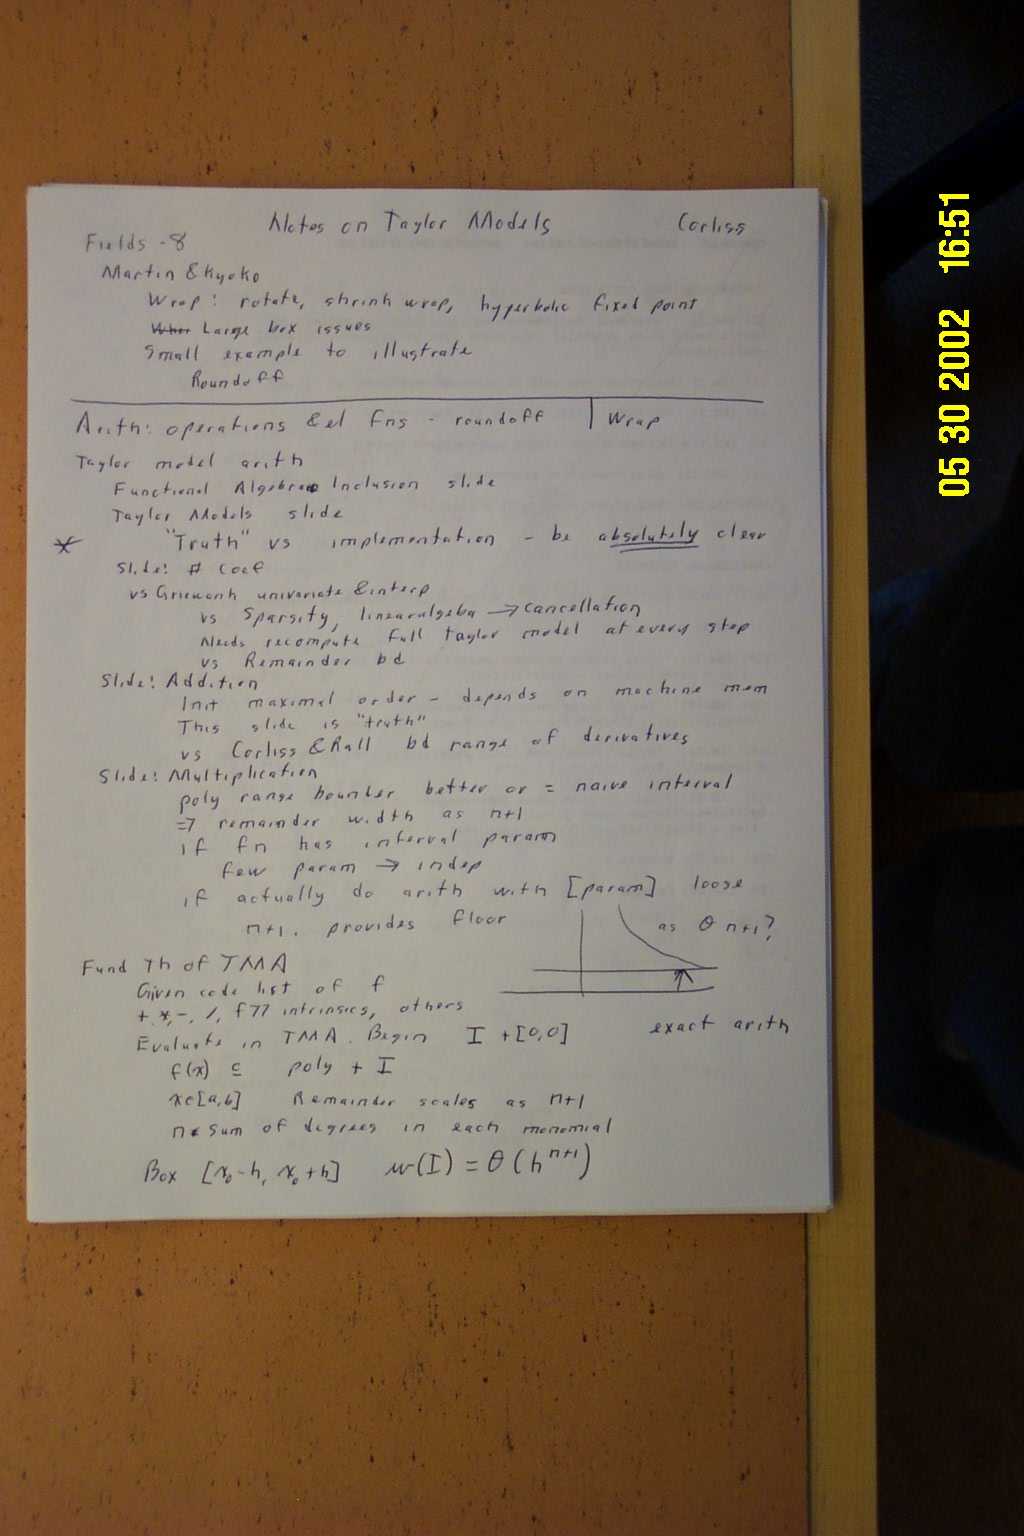 Notes on Taylor Models Corliss
Fields - 8
Martin & Kyoko
Wrap: rotate, shrink wrap, hyperbolic fixed point
Large box issues
Small example to illustrate
Roundoff
Arith: operations & el Fns - roundoff | Wrap
Taylor model arith
Functional Algebra Inclusion slide
Taylor Models slide
* "Truth" vs implementation - be absolutely clear
Slide: # coef
vs Griewank univariate & interp
vs Sparsity, linear algeba → cancellation
Needs recompute full taylor model at every step
vs Remainder bd
Slide: Addition
Init maximal order - depends on machine mem
This slide is "truth"
vs Corliss & Rall bd range of derivatives
Slide: Multiplication
poly range bounder better or = naive interval
⇒ remainder width as n+1
if fn has interval param
few param → indep
if actually do arith with [param] loose
n+1. provides floor as θ n+1?
Fund Th of TMA
Given code list of f
+, *, -, /, f77 intrinsics, others
Evaluate in TMA. Begin I + [0,0] exact arith
f(x) ⊆ poly + I
x∈[a,b] Remainder scales as n+1
n sum of degrees in each monomial
Box [x₀-h, x₀+h] w(I) = θ(hⁿ⁺¹)
05 30 2002 16:51